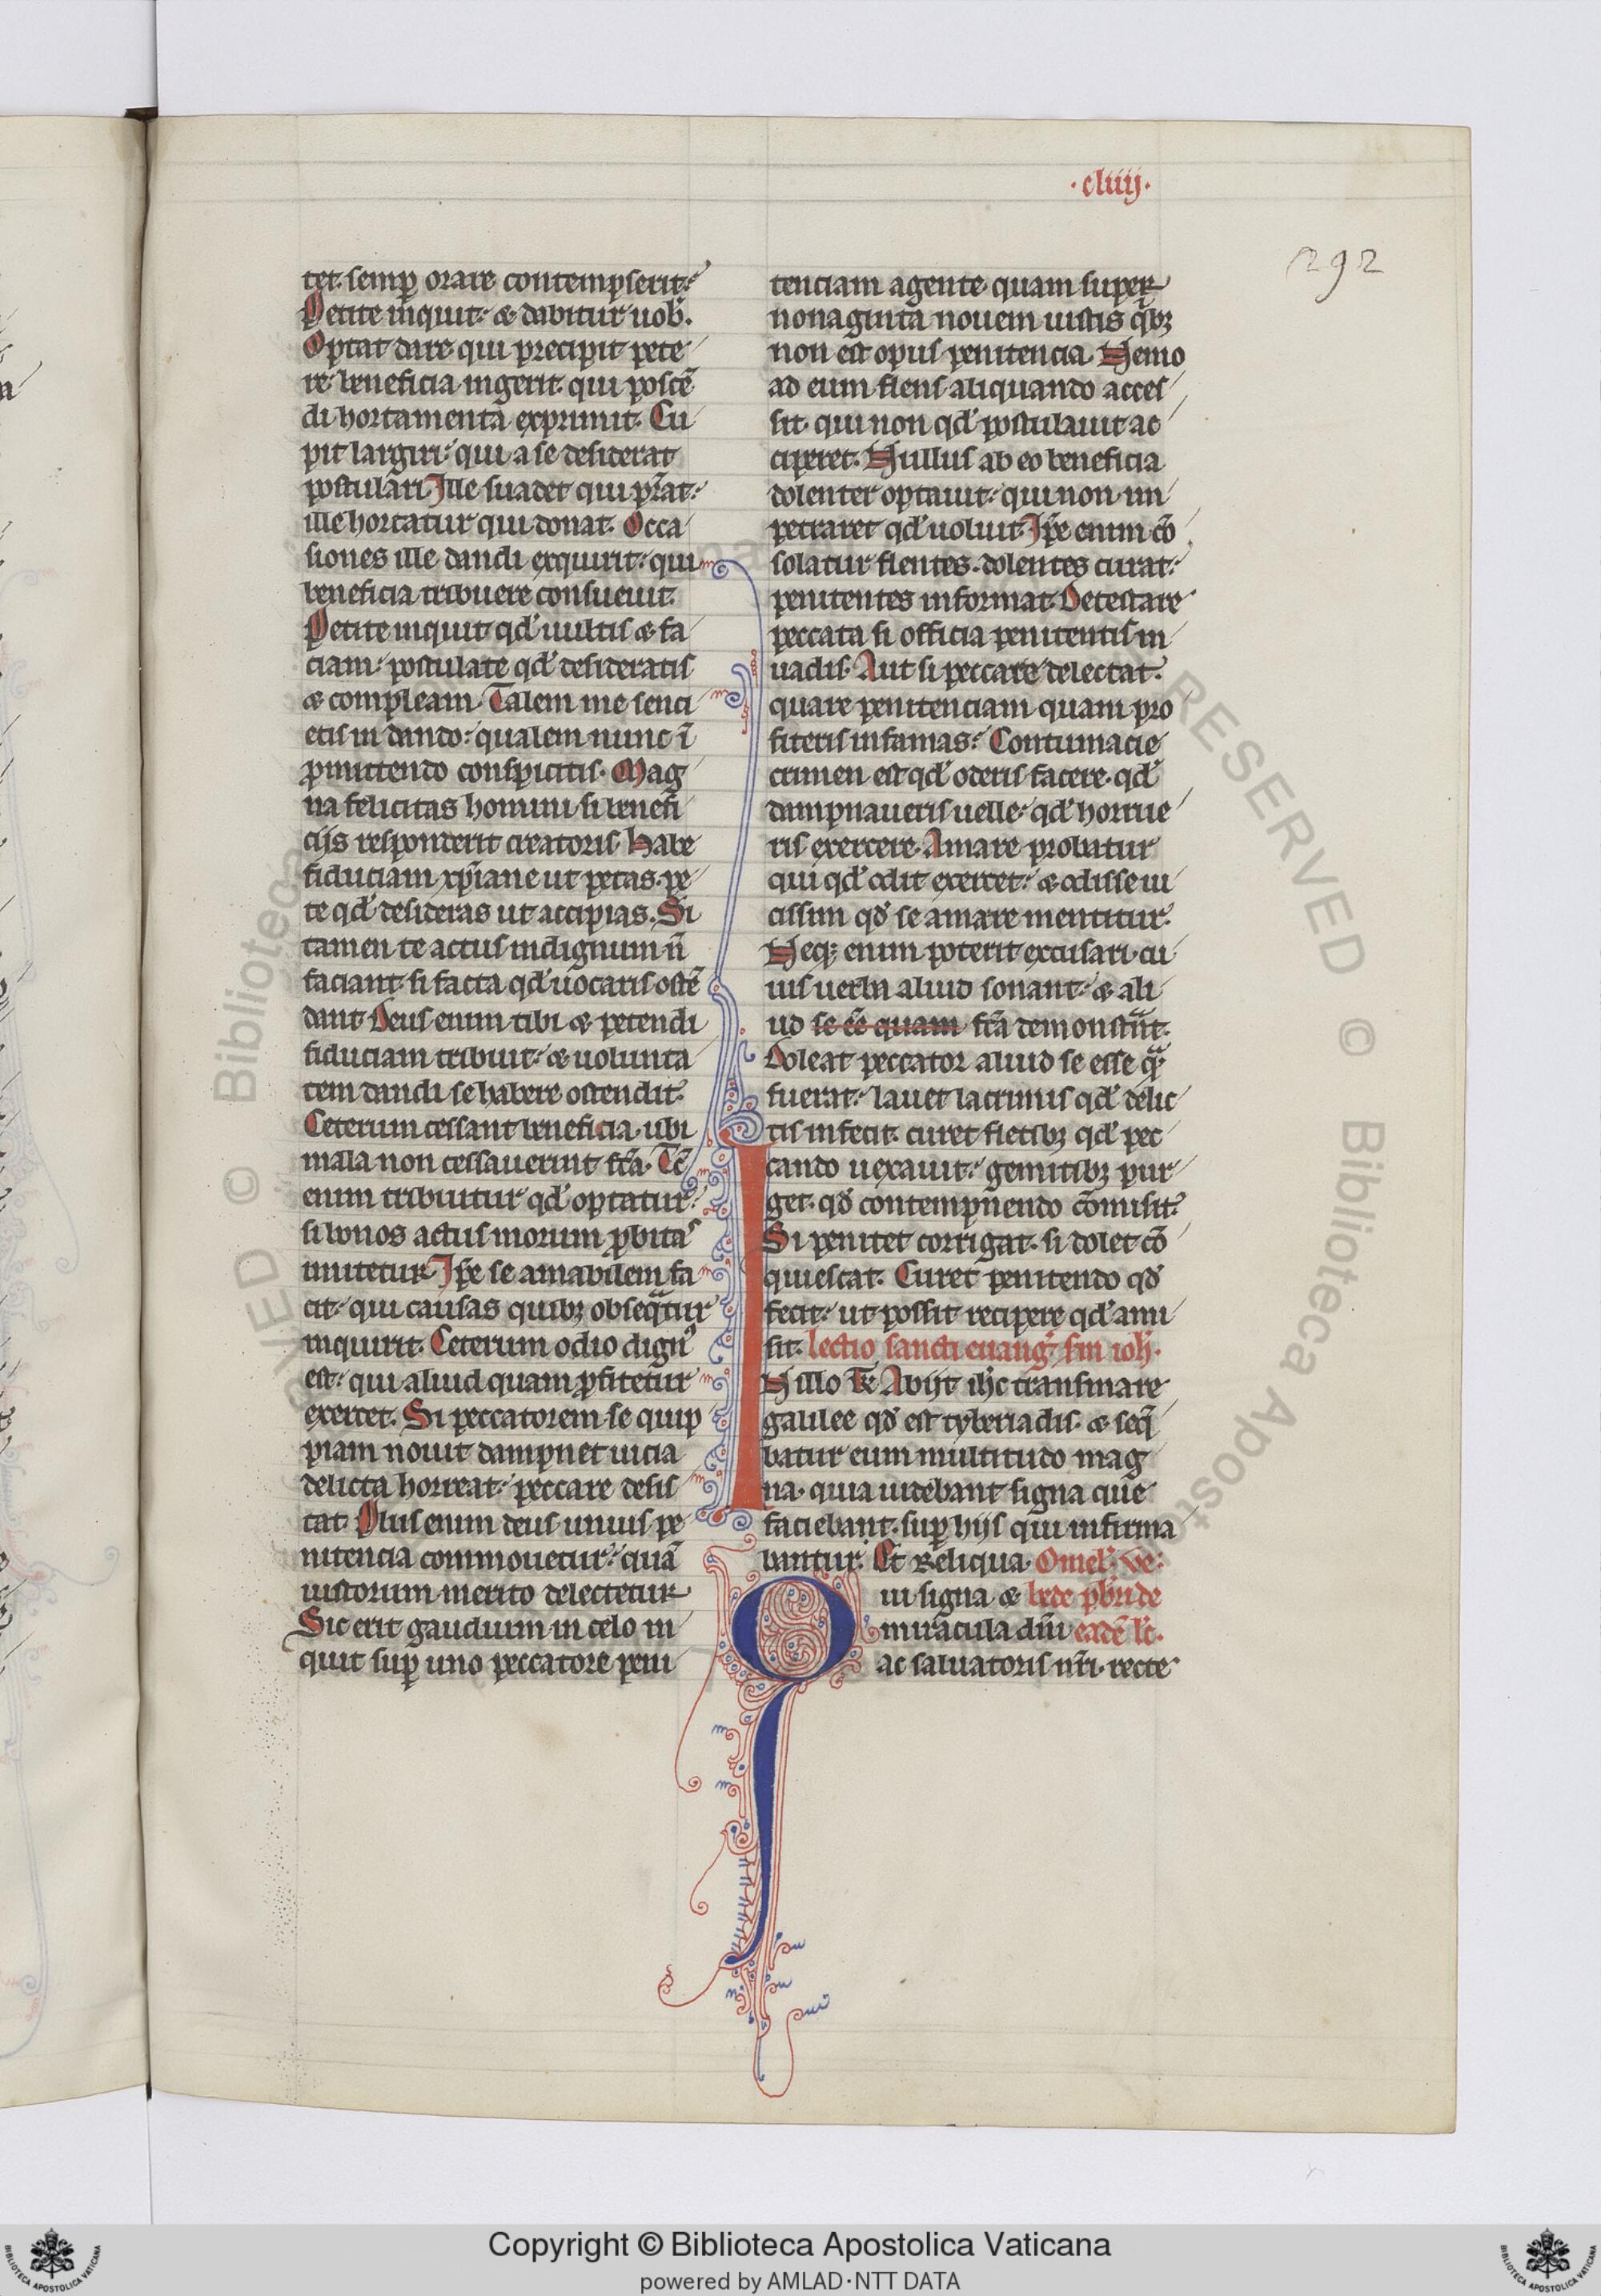 ·cliiij·
292
tet. semꝑ orare contempserit.
Petite inquit. ⁊ dabitur uob̅.
Optat dare qui precipit pete
re. beneficia ingerit. qui poscē
di hortamenta exprimit. Cu
pit largiri. qui a se desiderat
postulari. Ille suadet qui p̄stat.
ille hortatur qui donat. Occa
siones ille dandi exquirit. qui
beneficia tribuere consueuit.
Petite inquit qd̕ uultis ⁊ fa
ciam. postulate qd̕ desideratis
⁊ compleam. Talem me senci
etis in dando. qualem nunc ī
ꝓmittendo conspicitis. Mag
na felicitas homini si benefi
cijs responderit creatoris. Habe
fiduciam xp̄iane ut petas. pe
te qd̕ desideras ut accipias. Si
tamen te actus indignum n̄
faciant. si facta qd̕ uocaris ostē
dant. Deus enim tibi ⁊ petendi
fiduciam tribuit. ⁊ uolunta
tem dandi se habere ostendit.
Ceterum cessant beneficia. ubi
mala non cessauerint fc̄a. Tc̄
enim tribuitur qd̕ optatur.
si bonos actus morum ꝓbitas
imitetur. Ip̄e se amabilem fa
cit. qui causas quibꝫ obsequatur
inquirit. Ceterum odio dignꝰ
est. qui aliud quam ꝓfitetur
exercet. Si peccatorem se quip
piam nouit dampnet uicia
delicta horreat. peccare desis
tat. Plus enim deus unius pe
nitencia commouetur. quā
iustorum merito delectetur
Sic erit gaudium in celo in
quit suꝑ uno peccatore peni
tenciam agente quam super
nonaginta nouem iustis qͥbꝫ
non est opus penitencia. Nemo
ad eum flens aliquando acces
sit. qui non qd̕ postulauit ac
ciperet. Nullus ab eo beneficia
dolenter optauit. qui non im
petraret qd̕ uoluit. Ip̄e enim cō
solatur flentes. dolentes curat.
penitentes informat. Detestare
peccata si officia penitentis in
uadis. Aut si peccare delectat.
quare penitenciam quam pro
fiteris infamas. Contumacie
crimen est qd̕ oderis facere. qd̕
dampnaueris uelle. qd̕ horrue
ris exercere. Amare probatur
qui qd̕ odit exercet. ⁊ odisse ui
cissim qd̕ se amare mentitur.
Neqꝫ enim poterit excusari. cu
ius uerba aliud sonant. ⁊ ali
ud se eē quam fc̄a demonstrant.
Doleat peccator aliud se esse qͣ
fuerat. lauet lacrimis qd̕ delic
tis infecit. curet fletibꝫ qd̕ pec
cando uexauit. gemitibꝫ pur
get. qd̕ contempnendo cōmisit.
Si penitet corrigat. si dolet cō
quiescat. Curet penitendo qd̕
fecit. ut possit recipere qd̕ ami
sit. lectio sancti euang̅. scd̅m ioh̅.
IN illo t̄r̄. Abijt ih̅c trans mare
galilee qd̕ est tyberiadis. ⁊ seq̄
batur eum multitudo mag
na. quia uidebant signa que
faciebant. suꝑ hijs qui infirma
bantur. Et Reliqua. Omel̅. ve.
Qui signa ⁊ bede p̅bri de
miracula dn̄i eadē lc̅.
ac saluatoris nr̄i. recte
Copyright © Biblioteca Apostolica Vaticana
powered by AMLAD·NTT DATA